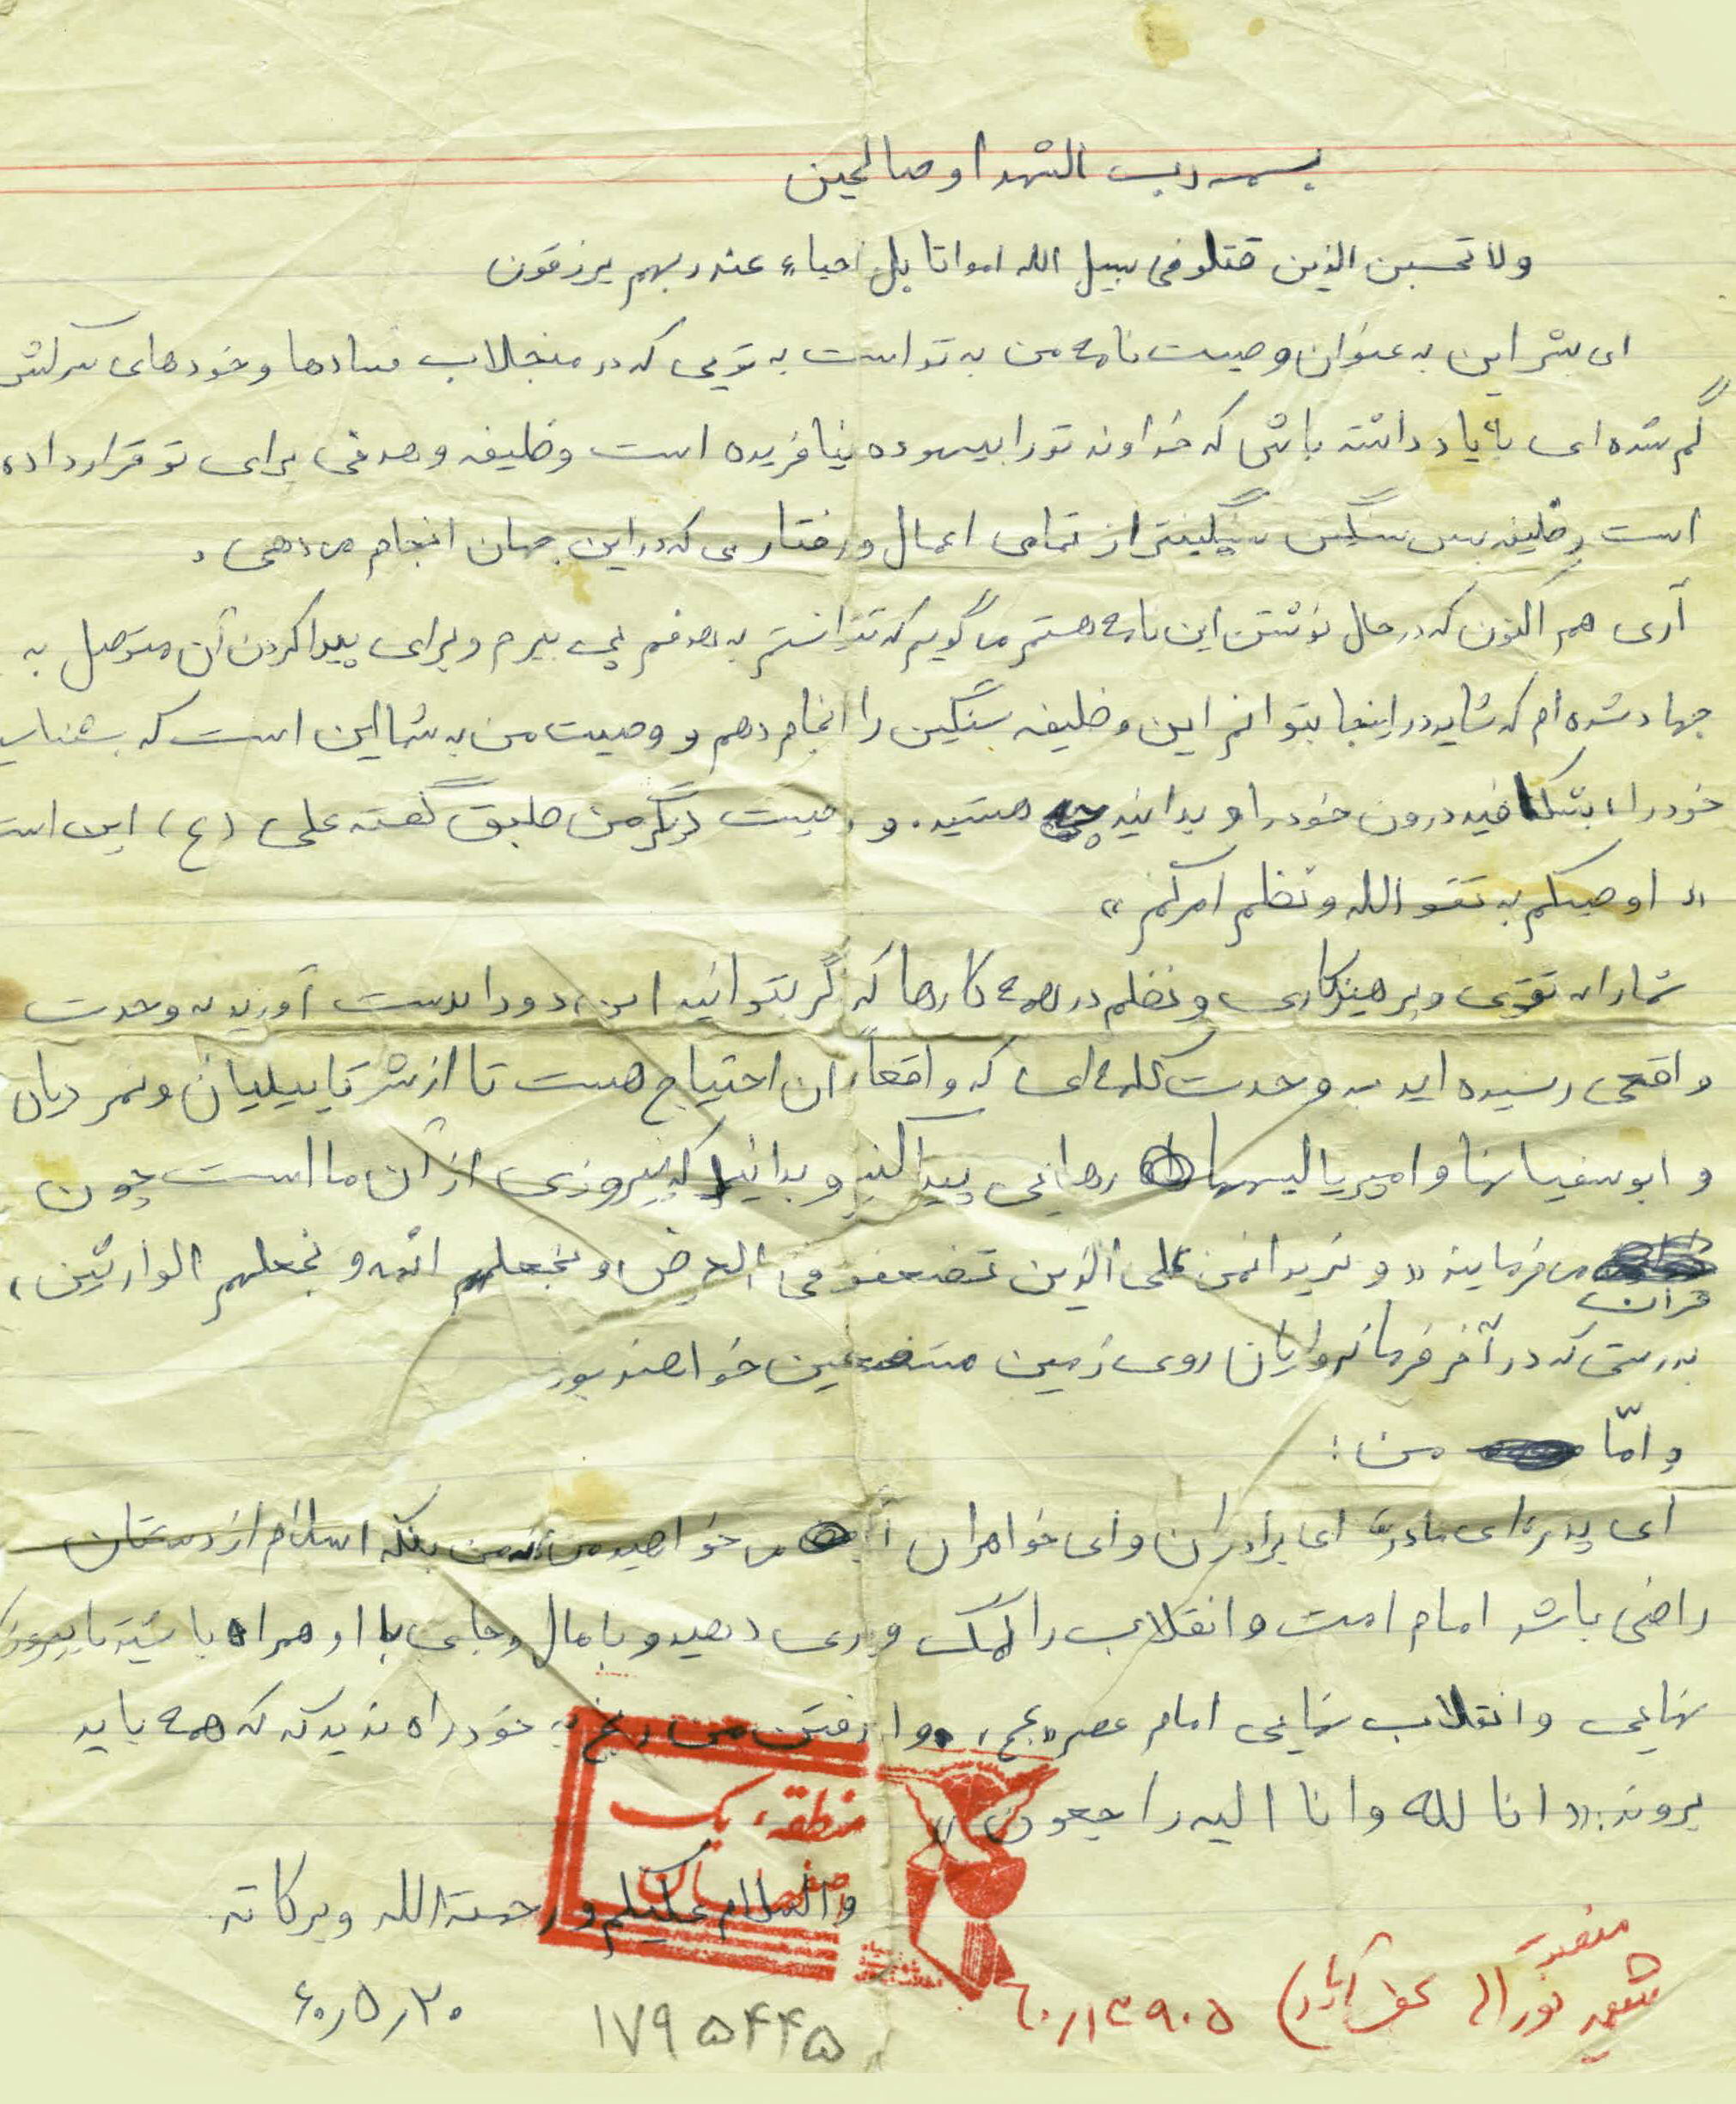 بسمه رب الشهدا و صالحین
ولا تحسبن الذین قتلو فی سبیل الله امواتا بل احیاء عند ربهم یرزقون
ای بشر این به عنوان وصیت نامه من به تو است به تویی که در منجلاب فسادها و خودهای سرکش
گم شده ای به یاد داشته باش که خداوند تو را بیهوده نیافریده است وظیفه و هدفی برای تو قرار داده
است وظیفه بس سنگین سنگینتر از تمامی اعمال و رفتاری که در این جهان انجام می دهی .
آری هم اکنون که در حال نوشتن این نامه هستم می گویم که نتوانستم به هدفم پی ببرم و برای پیدا کردن آن متوصل به
جهاد شده ام که شاید در اینجا بتوانم این وظیفه سنگین را انجام دهم و وصیت من به شما این است که بشناسید
خود را، بشکافید درون خود را و بدانید چه هستید. و وصیت دیگر من طبق گفته علی (ع) این است
« اوصیکم به تقو الله و نظم امرکم »
شما را به تقوی و پرهیزکاری و نظم در همه کارها که گر بتوانید این دو را بدست آورید به وحدت
واقعی رسیده اید به وحدت کلمه ای که واقعاً به آن احتیاج هست تا از شر قابیلیان و نمرودیان
و ابوسفیانها و امپریالیسهها رهایی پیدا کنید و بدانید که پیروزی از آن ما است چون
قرآن می فرماید « و نرید انمن علی الذین تضعفو فی الارض و نجعلهم ائمه و نجعلهم الوارثین »
بدرستی که در آخر فرمانروایان روی زمین مستضعفین خواهند بود
و امّا من :
ای پدر، ای مادر، ای برادران و ای خواهران اگر می خواهید من نه من بلکه اسلام از دستتان
راضی باشد امام امت و انقلاب را کمک و یاری دهید و با مال و جان با او همراه باشید تا پیروزی
نهایی و انقلاب نهایی امام عصر «عج» و از رفتن من رنج به خود راه ندید که که همه باید
بروند: « انا لله وانا الیه راجعون »
منطقه یک
والسلام علیکم و رحمة الله و برکاته
شهید نورالله
۶۰٫۱۳۹۰۵
۶۰٫۵٫۲۰
۱۷۹۵۴۴۵